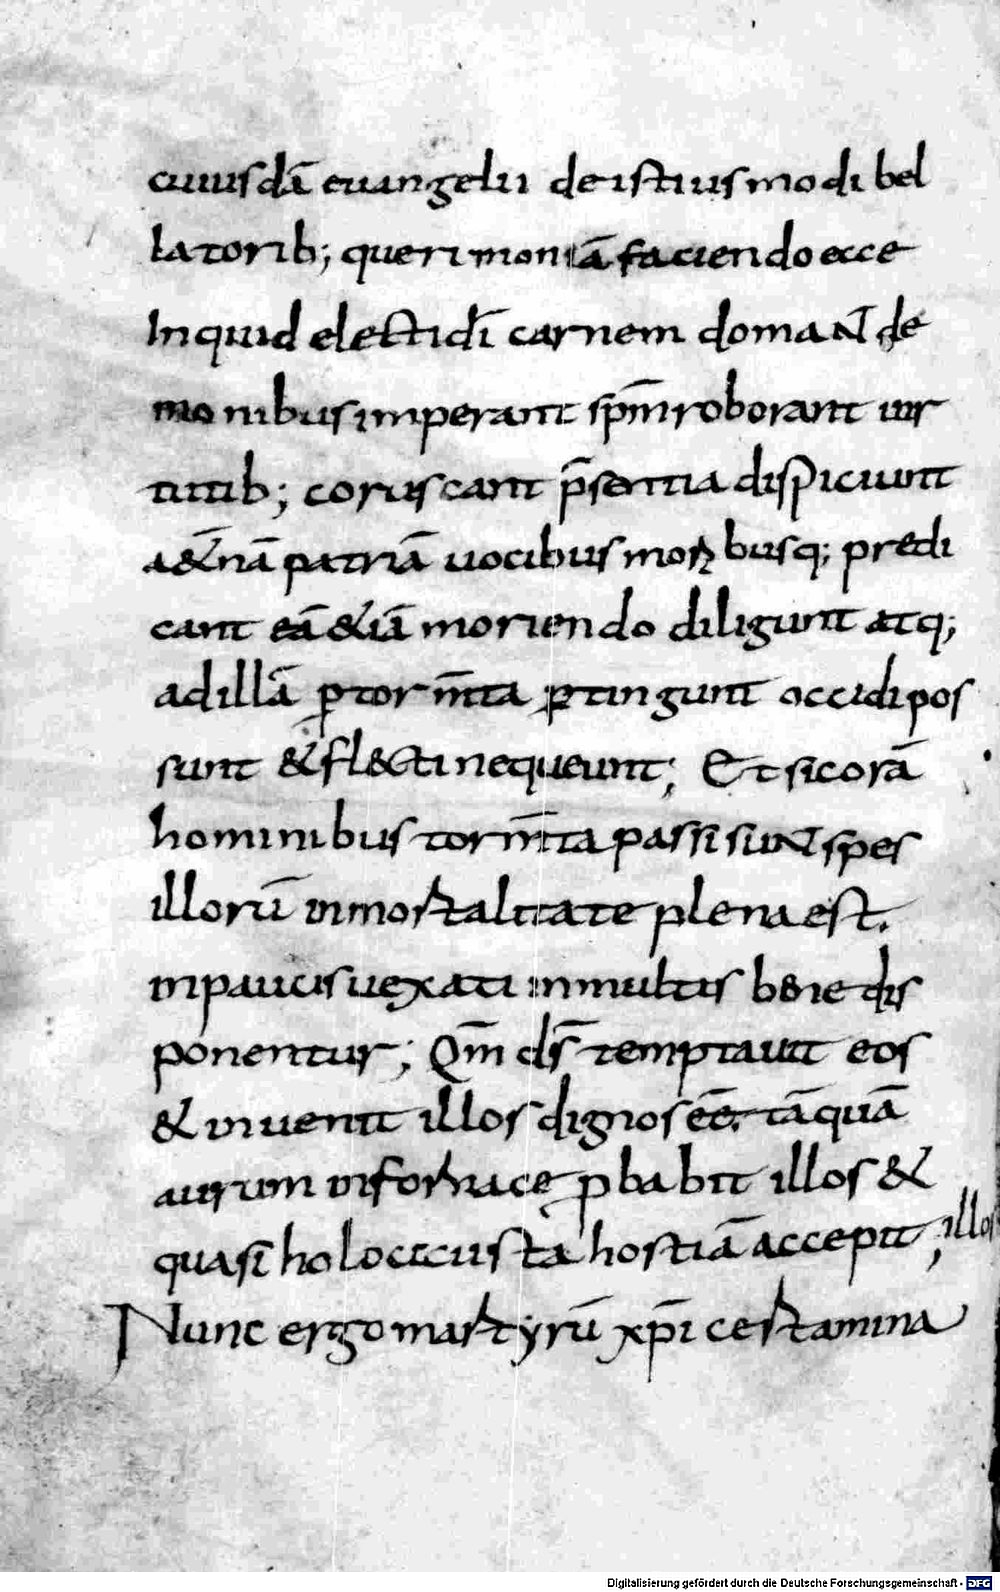 cuiusdā euangelii de istiusmodi bel
latorib; querimoniā faciendo ecce
Inquid electi dī carnem domaNT de
monibus imperant sp̄m roborant uir
tutib; coruscant p̄sentia dispiciunt
a&nā patriā uocibus moꝝ busq; predi
cant eā &iā moriendo diligunt atq;
ad illā ꝑ torm̄ta ꝑtingunt occidi pos
sunt & fl&cti nequeunt; Et si corā
hominibus torm̄ta passi suNT spes
illorū inmortalitate plena est.
in paucis uexati in multis bene dis
ponentur; Qm̄ ds̄ temptauit eos
& inuenit illos dignos eē. tāquā
aurum in fornace ꝓbabit illos &
quasi holocusta hostiā accepit; illos
Nunc ergo martyrū xp̄i certamina
Digitalisierung gefördert durch die Deutsche Forschungsgemeinschaft - DFG